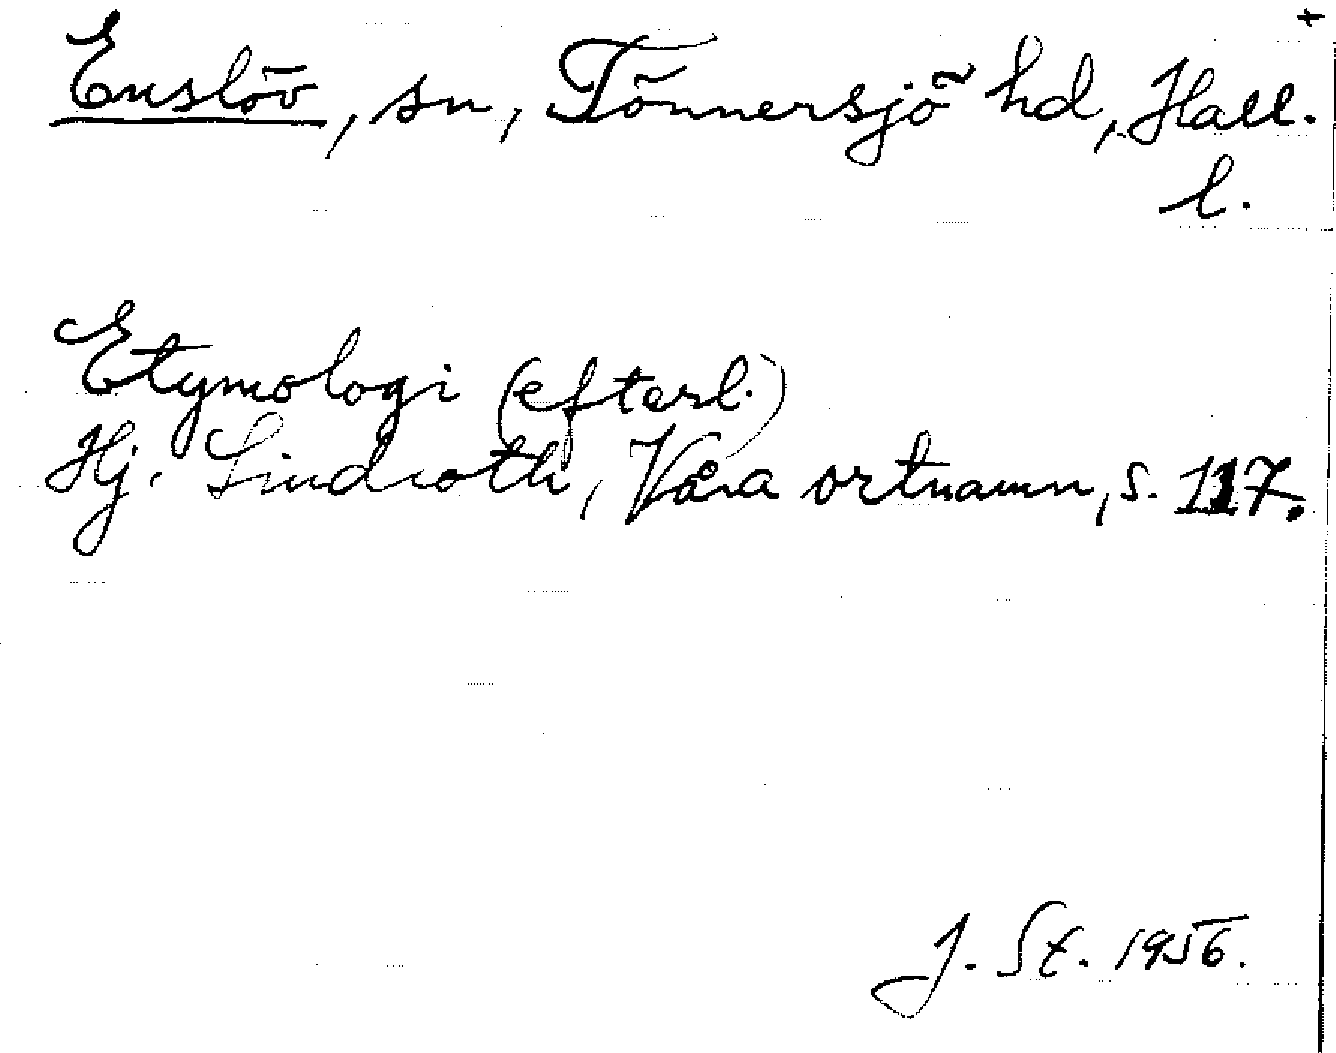 +
Enslöv, sn, Tönnersjö hd, Hall.
l.
Etymologi (efterl.)
Hj. Lindroth, Våra ortnamn, s. 117.
J. St. 1956.